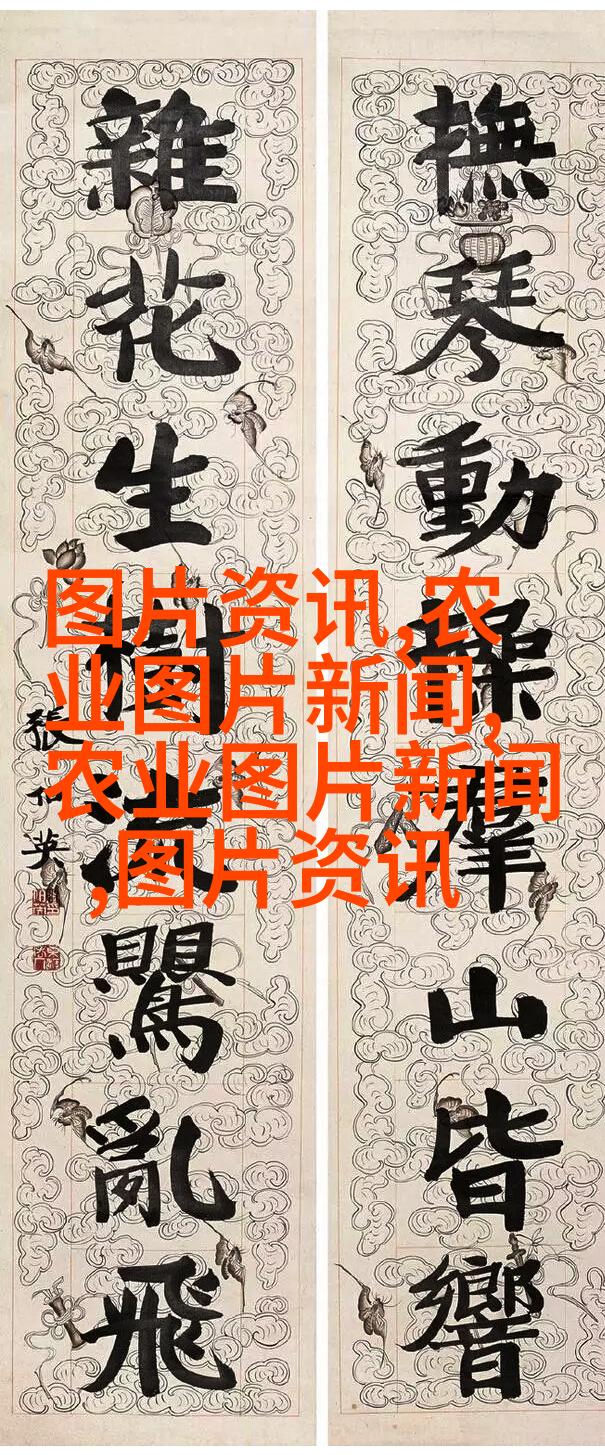 撫琴動操羣山皆響
雜花生樹鸎亂飛
張伯英
图片资讯,农
业图片新闻,
农业图片新闻
,图片资讯